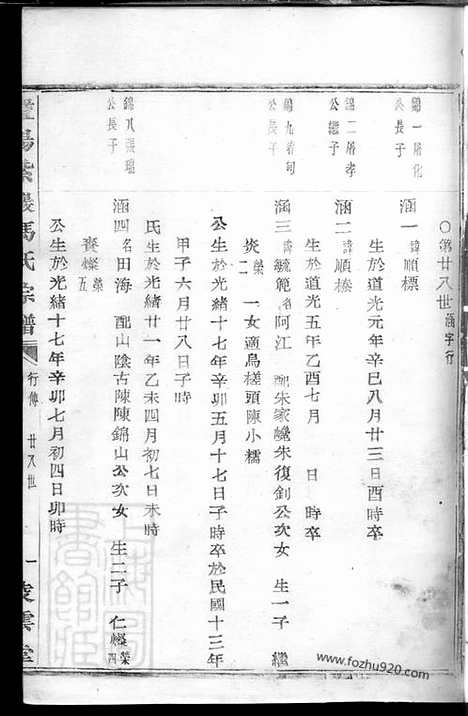 ○第廿八世 涵字行
錦一屠化
公長子
涵一 諱順標
公生於道光元年辛巳八月廿三日酉時卒
錦二屠孝
公繼子
涵二 諱順榛
生於道光五年乙酉七月 日 時卒
錦九
公長子
涵三 諱毓範 名阿江 配朱家 朱復釗公次女 生一子 繼
炎 榮二 一女適烏槎頭陳小糯
公生於光緒十七年辛卯五月十七日子時卒於民國十三年
甲子六月廿八日子時
氏生於光緒廿一年乙未四月初七日未時
錦八張瑞
公長子
涵四 名田海 配山陰古陳陳錦山公次女 生二子 仁燦 榮四
賚燦 榮五
公生於光緒十七年辛卯七月初四日卯時
陽 馬氏宗譜
行傳 廿八世
一 凌雲堂
上海圖書館藏
www.fozhu920.com